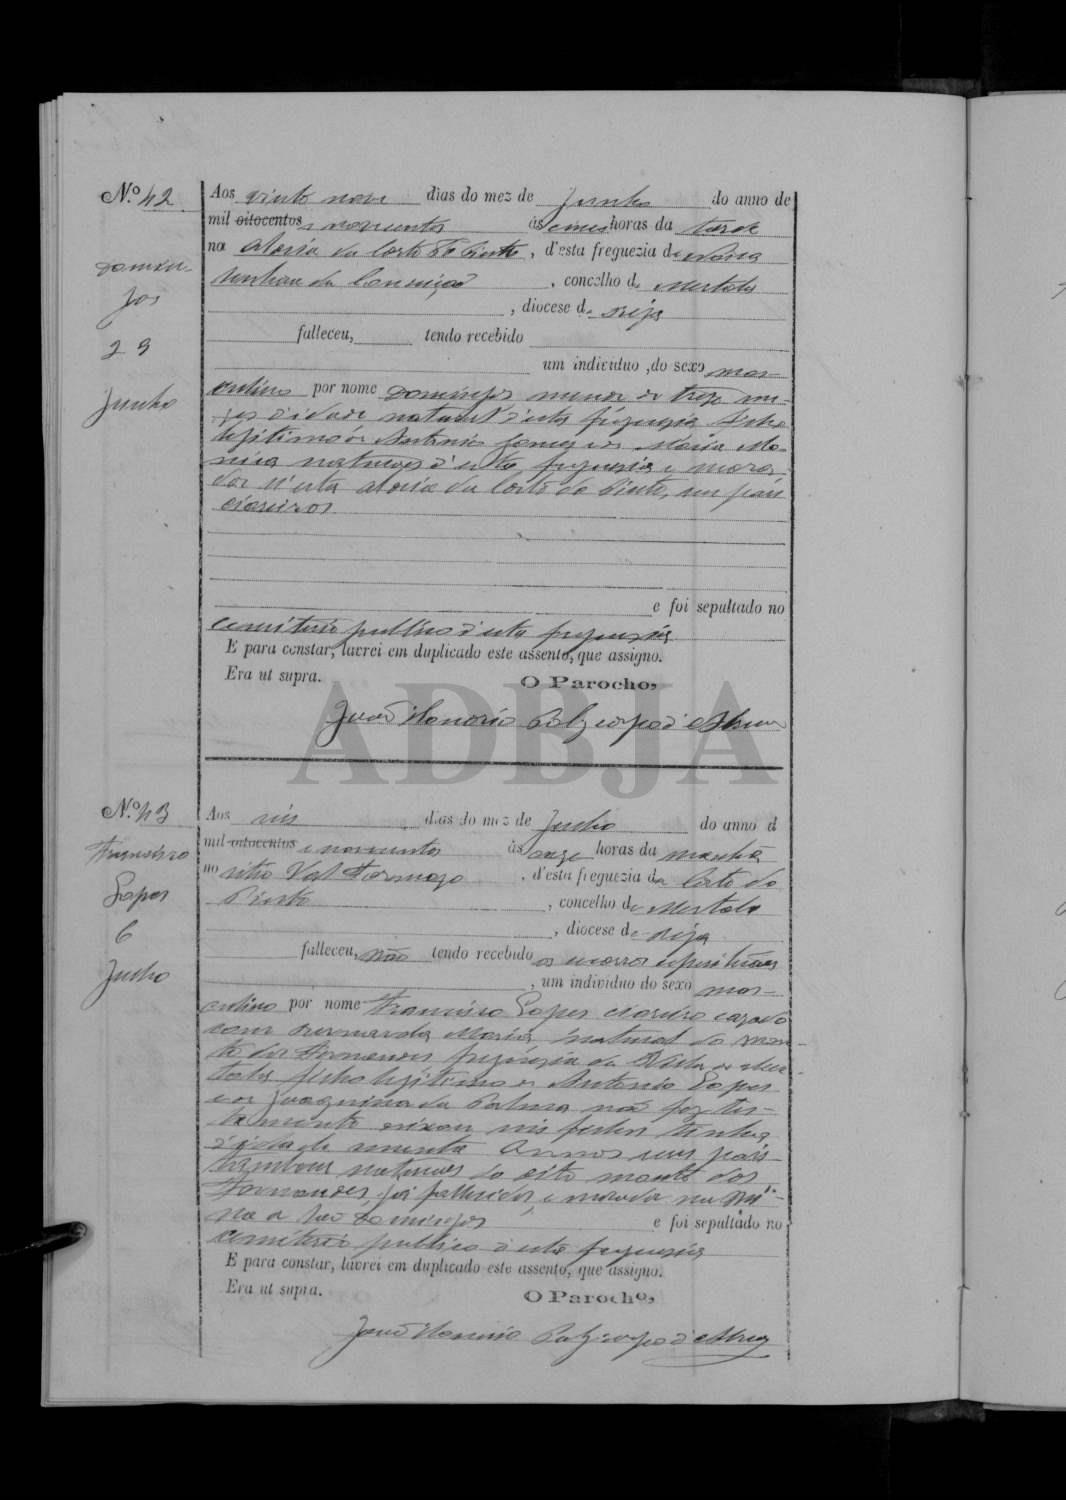 N.º 42
Domin-
gos
29
Junho
Aos vinte nove dias do mez de Junho do anno de
mil oitocentos e novecentos ás cinco horas da tarde
na Aldeia da Corte do Pinto, d'esta freguezia de Nossa
Senhora da Conceição, concelho de Mertola
, diocese de Beja
falleceu, tendo recebido
um individuo do sexo mas-
culino por nome Domingos menor de treze me-
zes d'idade natural d'esta freguezia filho
legitimo de Antonio Gomes e de Maria Mo-
nica naturaes d'esta freguezia e mora-
dor n'esta aldeia da Corte do Pinto, seus paes
e foi sepultado no
cemiterio publico d'esta freguezia
E para constar, lavrei em duplicado este assento, que assigno.
Era ut supra.
O Parocho,
João Honorio d'Abreu
ADBJA
N.º 43
Francisco
Lopes
6
Junho
Aos seis dias do mez de Junho do anno d
mil oitocentos e novecentos ás onze horas da manhã
no sitio Val Formozo, d'esta freguezia da Corte do
Pinto, concelho de Mertola
, diocese de Beja
falleceu, não tendo recebido os
, um individuo do sexo mas-
culino por nome Francisco Lopes cazado
com Bernarda Maria, natural do mon-
te dos Fernandes freguezia da de Mer-
tola filho legitimo de Antonio Lopes
e de Joaquina da Palma não fez tes-
tamento deixou seis filhos tinha
d'idade annos seus paes
tambem naturaes do sito monte dos
Fernandes, já fallecidos, e morada na Mi-
na de São Domingos e foi sepultado no
cemiterio publico d'esta freguezia
E para constar, lavrei em duplicado este assento, que assigno.
Era ut supra.
O Parocho,
João Honorio d'Abreu